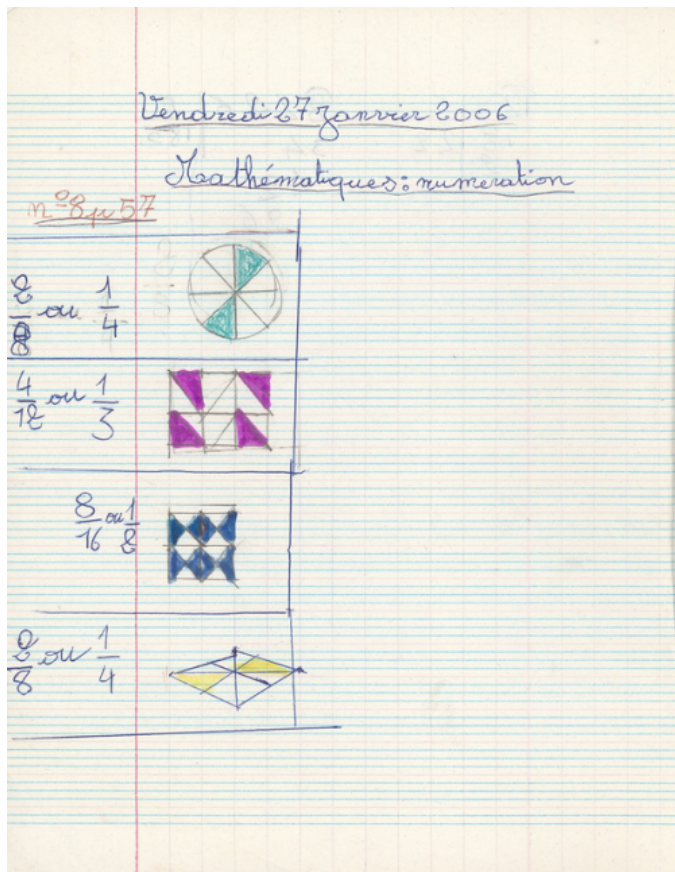 Vendredi 27 janvier 2006
Mathématiques: numeration
n°8 p 57
2/8 ou 1/4
4/12 ou 1/3
8/16 ou 1/2
2/8 ou 1/4